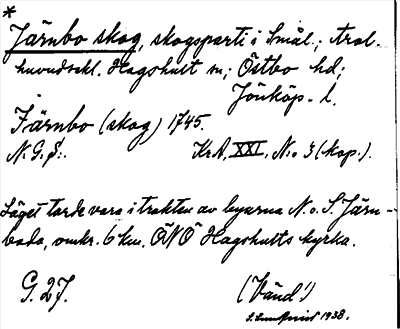 *
Järnbo skog, skogsparti i Smål.; trol.
huvudsakl. Hagshult sn; Östbo hd;
Jönköp. l.
Järnbo (skog) 1745.
N. G. S:. KrA, XXI, N:o 3 (kop.).
Läget torde vara i trakten av byarna N. o. S. Järn-
boda, omkr. 6 km. ÖNÖ Hagshults kyrka.
G. 27. (Vänd!)
S. Lundqvist 1938.